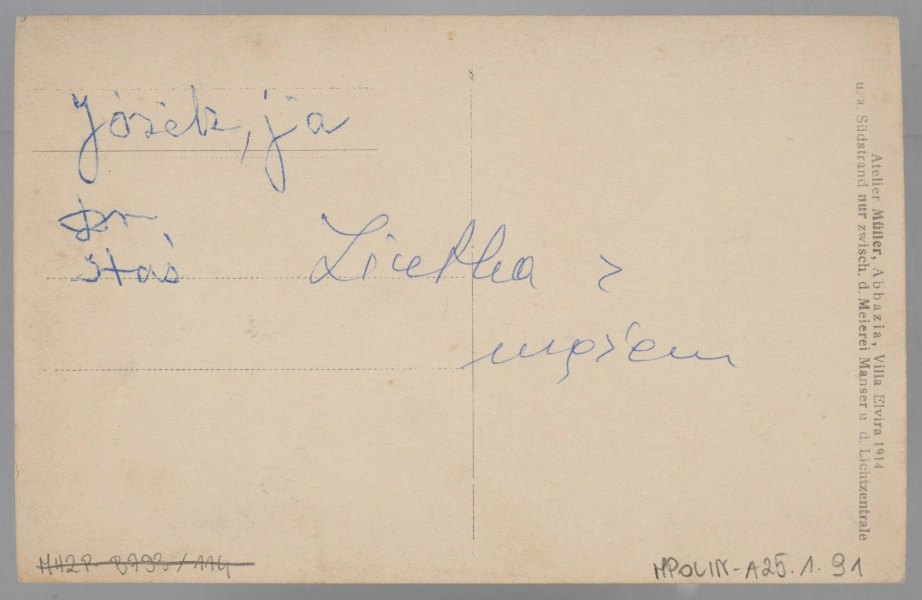 Józek, ja
Staś
z
mężem
Atelier Müller, Abbazia, Villa Elvira 1914
u. a. Südstrand nur zwisch. d. Meierei Manser u. d. Lichtzentrale
MPOLIN-A25.1.91